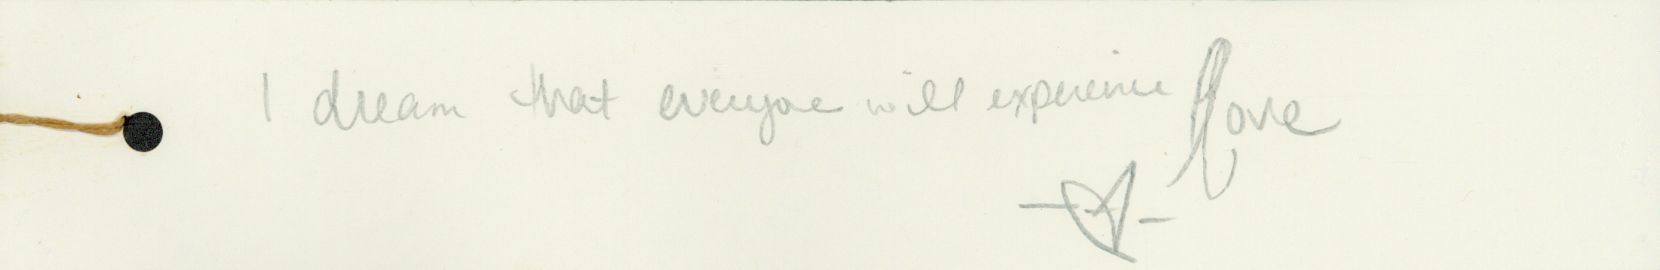 I dream that everyone will experience love